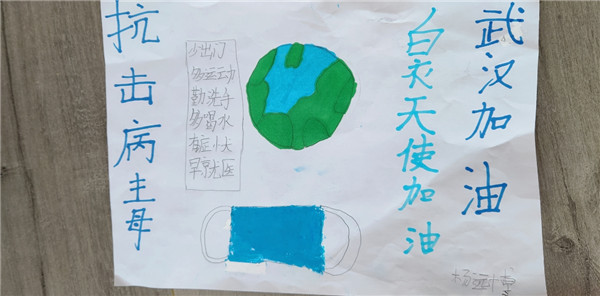 抗击病毒
少出门
多运动
勤洗手
多喝水
有症状
早就医
白衣天使加油
武汉加油